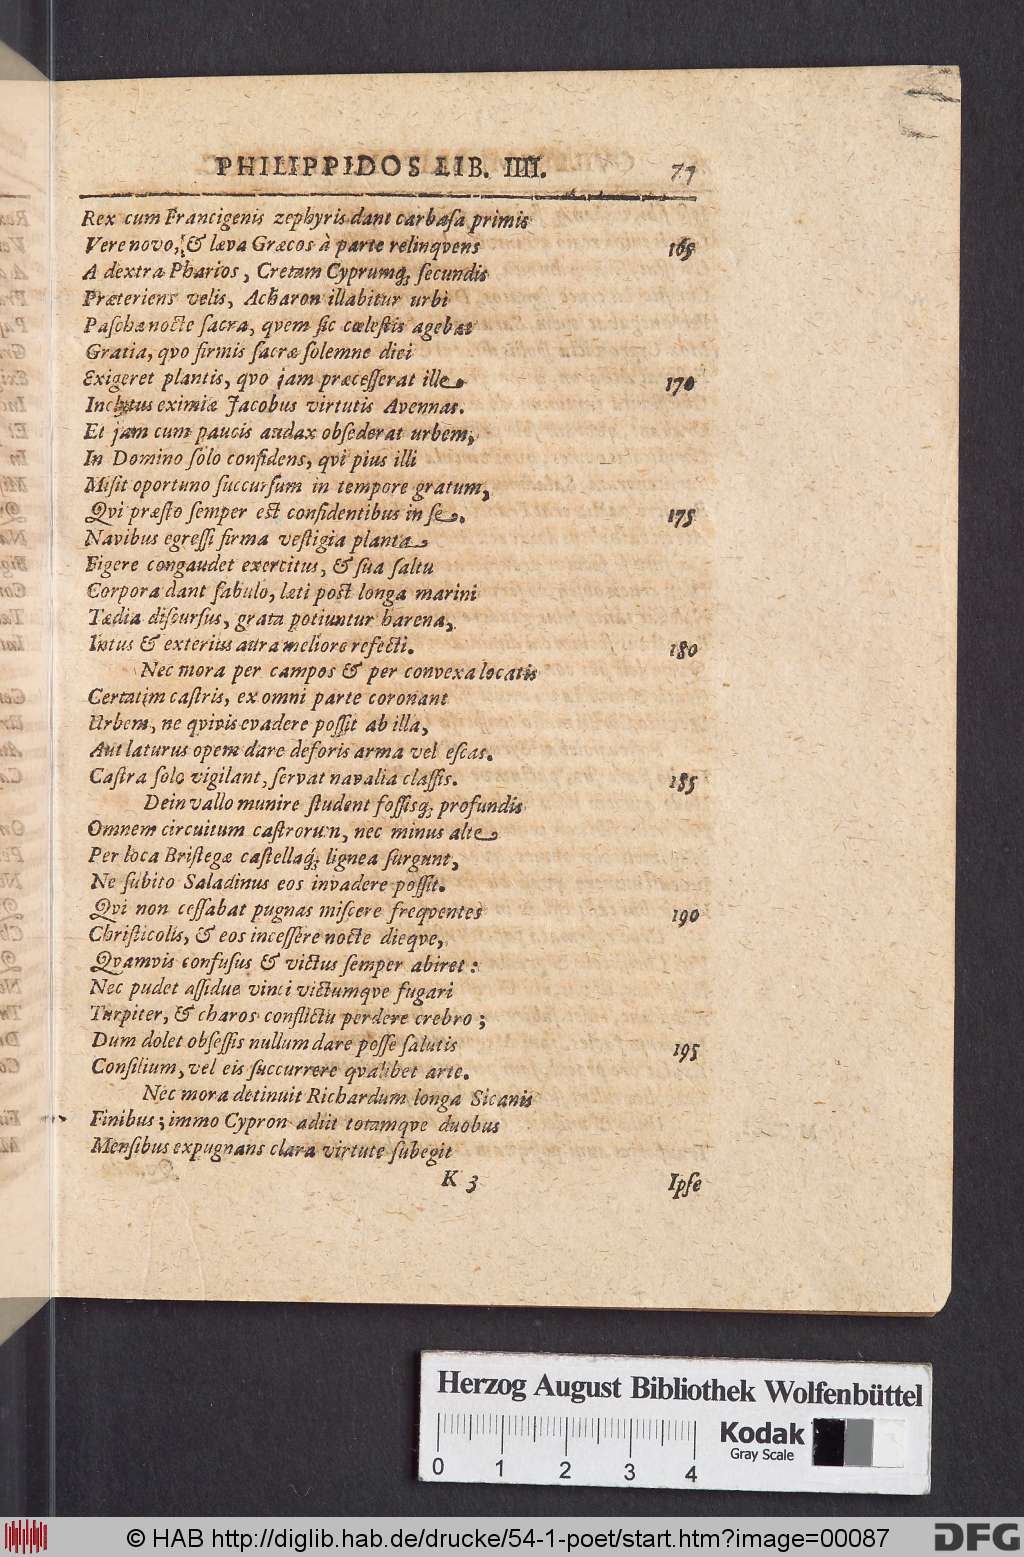 PHILIPPIDOS LIB. IIII. 77
Rex cum Francigenis zephyris dant carbasa primis
Vere novo, & læva Græcos à parte relinqvens 165
A dextra Pharios, Cretam Cyprumq; secundis
Præteriens velis, Acharon illabitur urbi
Paschæ nocte sacra, qvem sic cœlestis agebat
Gratia, qvo firmis sacræ solemne diei
Exigeret plantis, qvo jam præcesserat ille 170
Inclytus eximiæ Jacobus virtutis Avennas.
Et jam cum paucis audax obsederat urbem,
In Domino solo confidens, qvi pius illi
Misit oportuno succursum in tempore gratum,
Qvi præsto semper est confidentibus in se. 175
Navibus egressi firma vestigia planta
Figere congaudet exercitus, & sua saltu
Corpora dant sabulo, læti post longa marini
Tædia discursus, grata potiuntur harena,
Intus & exterius aura meliore refecti. 180
Nec mora per campos & per convexa locatis
Certatim castris, ex omni parte coronant
Urbem, ne qvivis evadere possit ab illa,
Aut laturus opem dare deforis arma vel escas.
Castra solo vigilant, servat navalia classis. 185
Dein vallo munire student fossisq; profundis
Omnem circuitum castrorum, nec minus alte
Per loca Bristegæ castellaq; lignea surgunt,
Ne subito Saladinus eos invadere possit.
Qvi non cessabat pugnas miscere freqventes 190
Christicolis, & eos incessere nocte dieqve,
Qvamvis confusus & victus semper abiret:
Nec pudet assidue vinci victumqve fugari
Turpiter, & charos conflictu perdere crebro;
Dum dolet obsessis nullum dare posse salutis 195
Consilium, vel eis succurrere qvalibet arte.
Nec mora detinuit Richardum longa Sicanis
Finibus; immo Cypron adiit totamqve duobus
Mensibus expugnans clara virtute subegit
K 3 Ipse
Herzog August Bibliothek Wolfenbüttel
Kodak
Gray Scale
0 1 2 3 4
© HAB http://diglib.hab.de/drucke/54-1-poet/start.htm?image=00087
DFG